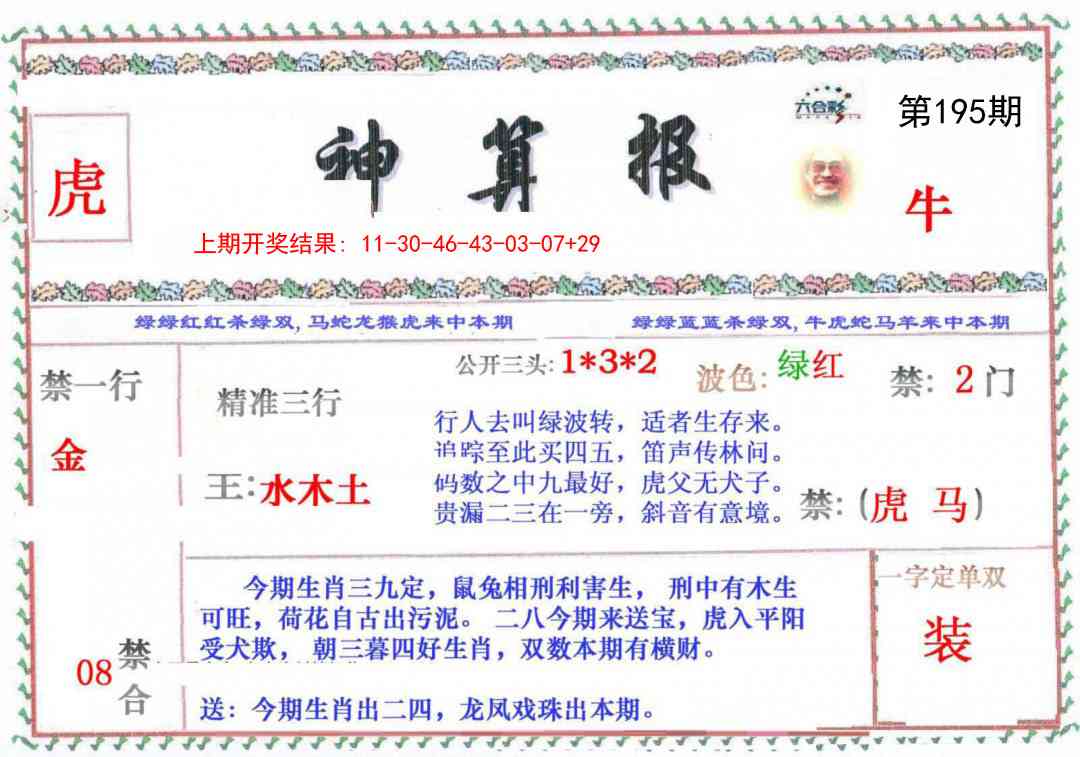 六合彩
第195期
虎
神算报
牛
上期开奖结果: 11-30-46-43-03-07+29
绿绿红红杀绿双,马蛇龙猴虎来中本期
绿绿蓝蓝杀绿双,牛虎蛇马羊来中本期
禁一行
金
精准三行
王:水木土
公开三头:1*3*2
波色:绿红
禁: 2门
行人去叫绿波转，适者生存来。
追踪至此买四五，笛声传林问。
码数之中九最好，虎父无犬子。
贵漏二三在一旁，斜音有意境。
禁:(虎 马)
08
禁合
今期生肖三九定，鼠兔相刑利害生， 刑中有木生
可旺，荷花自古出污泥。 二八今期来送宝，虎入平阳
受犬欺， 朝三暮四好生肖，双数本期有横财。
送：今期生肖出二四，龙凤戏珠出本期。
一字定单双
装